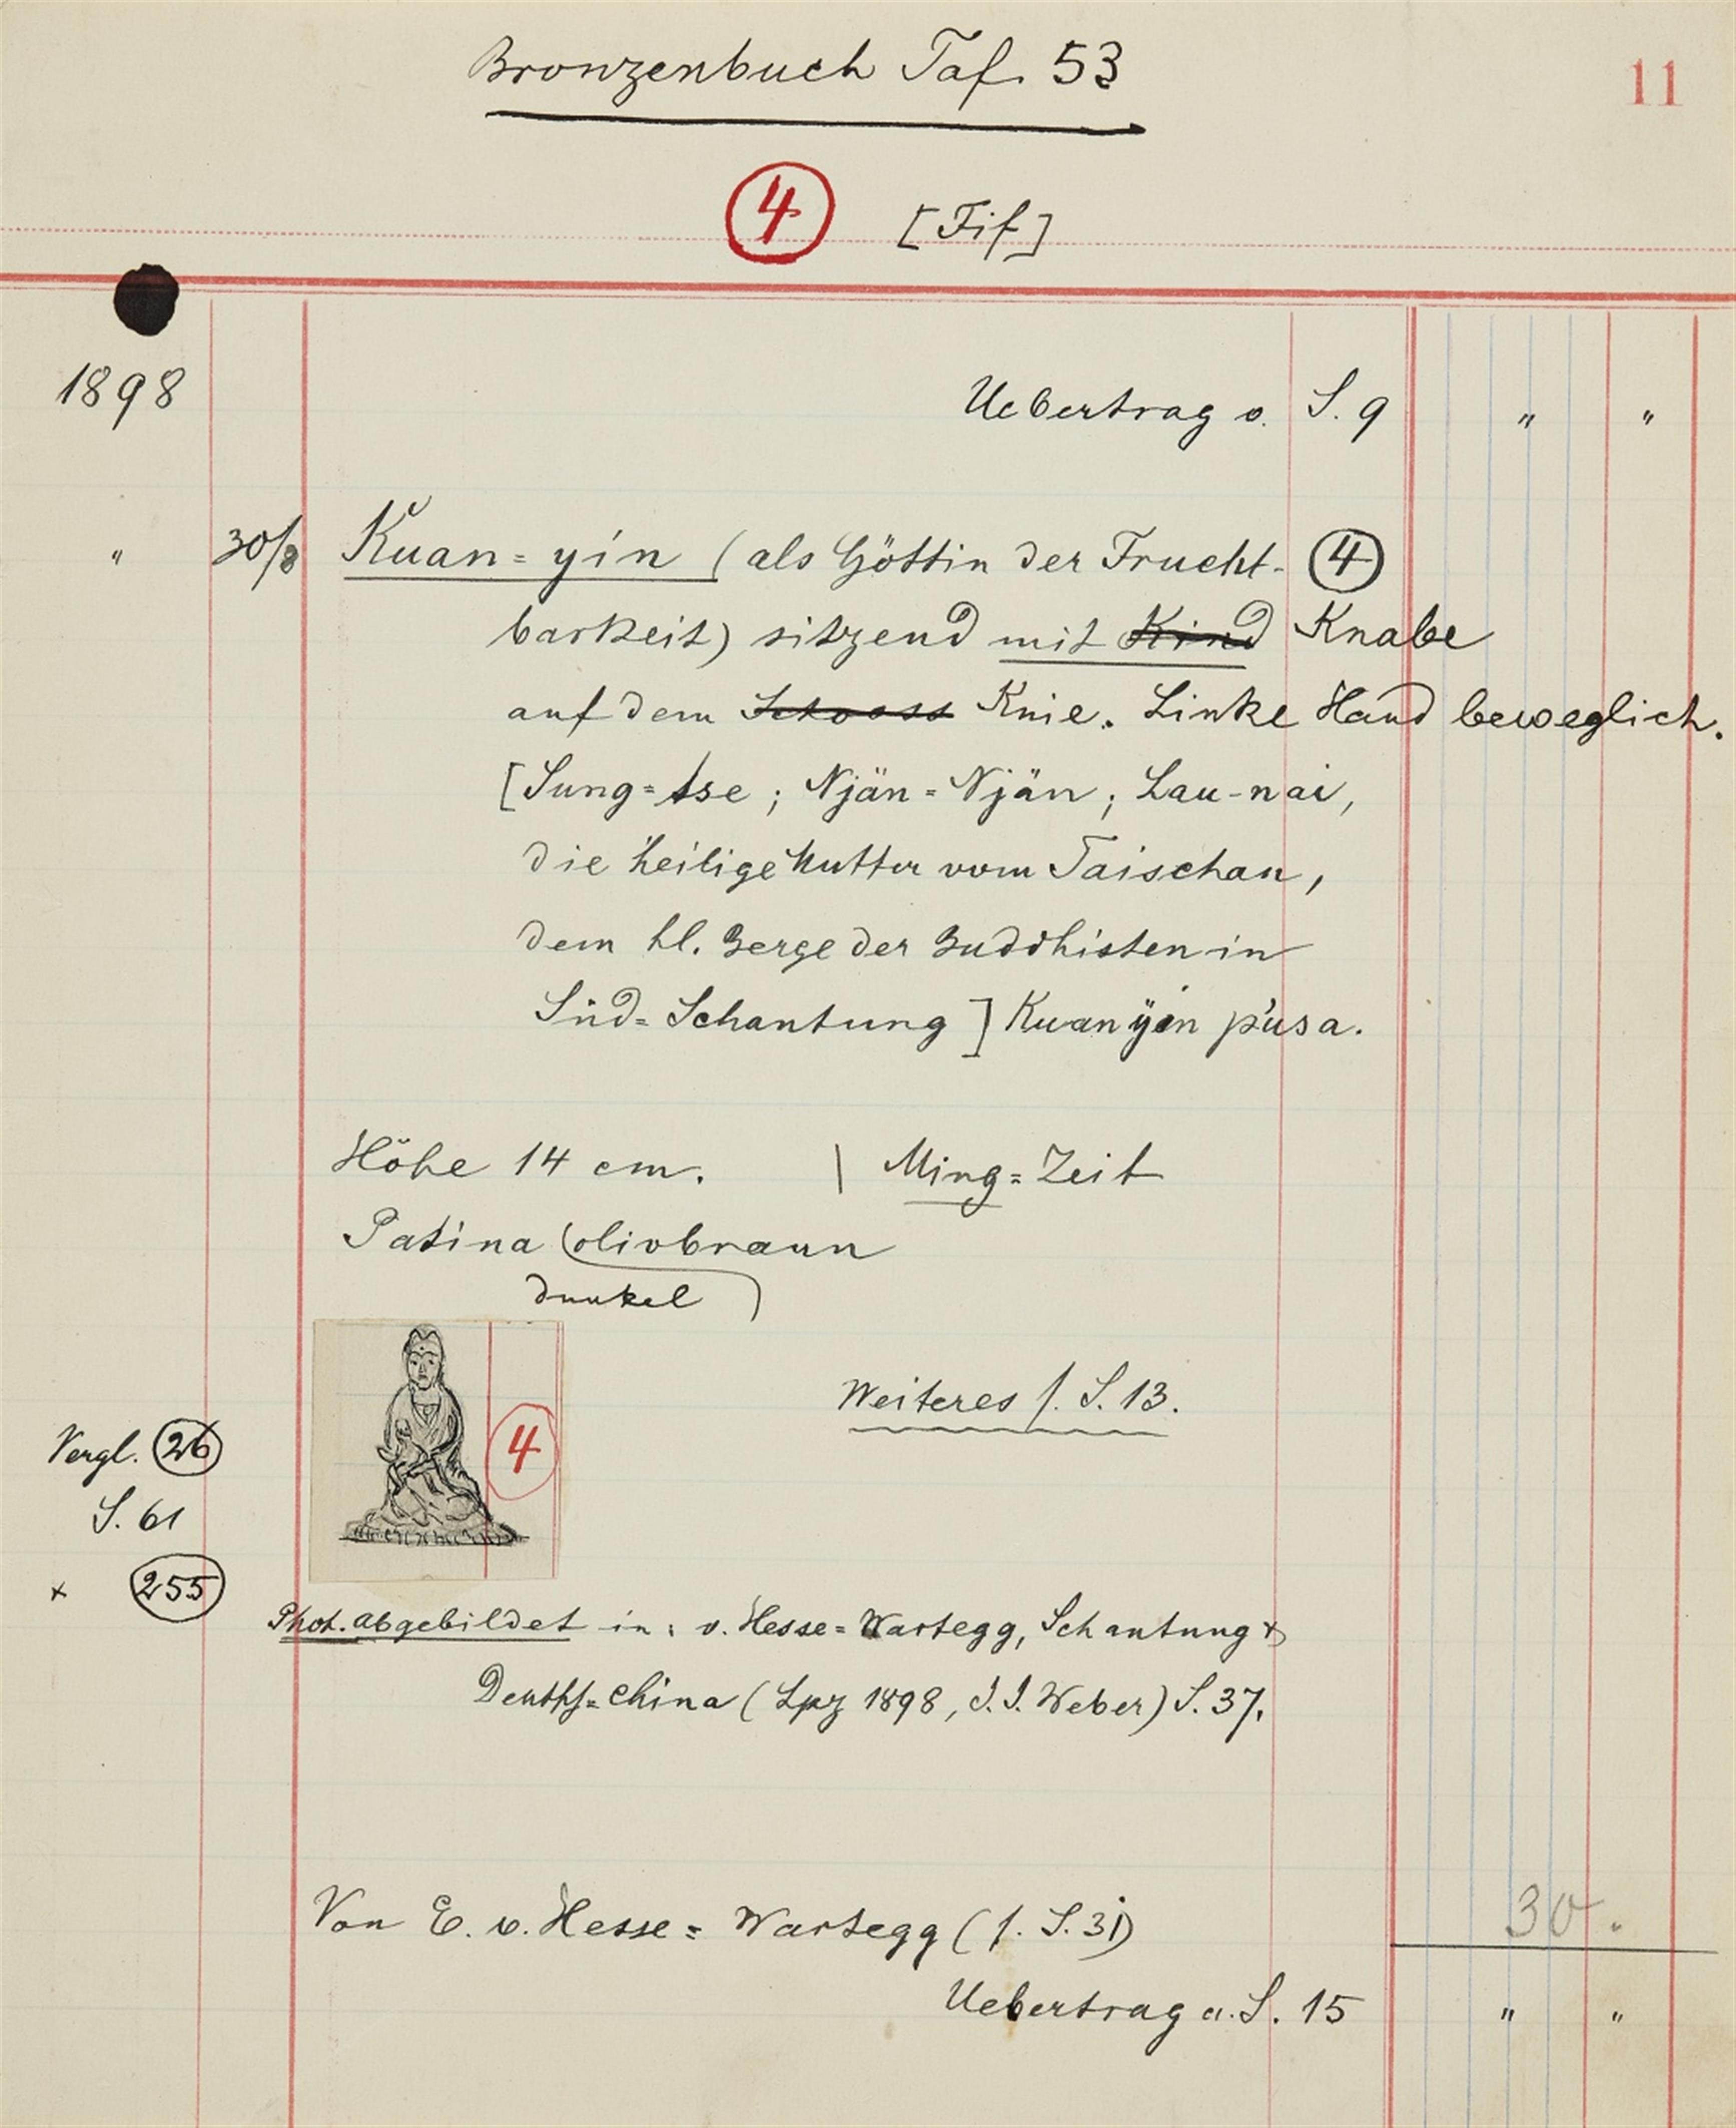 Bronzenbuch Taf. 53
11
4 [Fif]
1898 Uebertrag v. S. 9 " "
" 30/8 Kuan=yin (als Göttin der Frucht- 4
barkeit) sitzend mit Kind Knabe
auf dem Schooss Knie. Linke Hand beweglich.
[Sung=tse; Njän=Njän; Lau-nai,
die heilige Mutter vom Taischan,
dem hl. Berge der Buddhisten in
Süd=Schantung] Kwan yin p'usa.
Höhe 14 cm. | Ming=Zeit
Patina (olivbraun
dunkel)
4
Weiteres s. S. 13.
Vergl. 26
S. 61
x 255
Phot. abgebildet in: v. Hesse=Wartegg, Schantung &
Deutsch=China (Lpz 1898, J. J. Weber) S. 37.
Von E. v. Hesse=Wartegg (s. S. 31) 30 "
Uebertrag a. S. 15 " "